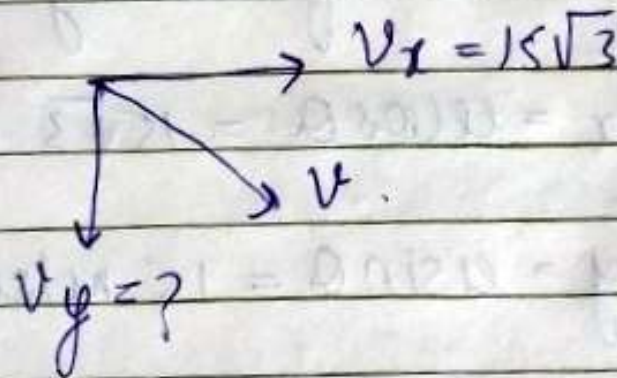 Vx = 15√3
V.
Vy = ?